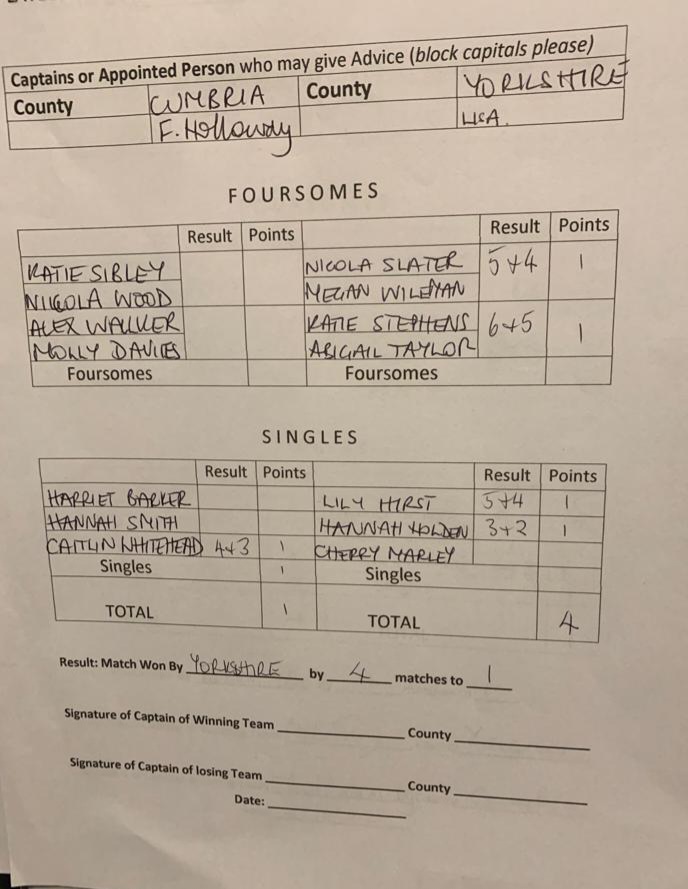 Captains or Appointed Person who may give Advice (block capitals please)
County CUMBRIA County YORKSHIRE
F. Holloway LISA.
FOURSOMES
Result Points Result Points
KATIE SIBLEY NICOLA SLATER 5+4 1
NICOLA WOOD MEGAN WILEMAN
ALEX WALKER KATIE STEPHENS 6+5 1
MOLLY DAVIES ABIGAIL TAYLOR
Foursomes Foursomes
SINGLES
Result Points Result Points
HARRIET BARKER LILY HIRST 5+4 1
HANNAH SMITH HANNAH HOLDEN 3+2 1
CAITLIN WHITEHEAD 4+3 1 CHERRY MARLEY
Singles 1 Singles
TOTAL 1 TOTAL 4
Result: Match Won By YORKSHIRE by 4 matches to 1
Signature of Captain of Winning Team County
Signature of Captain of losing Team County
Date: